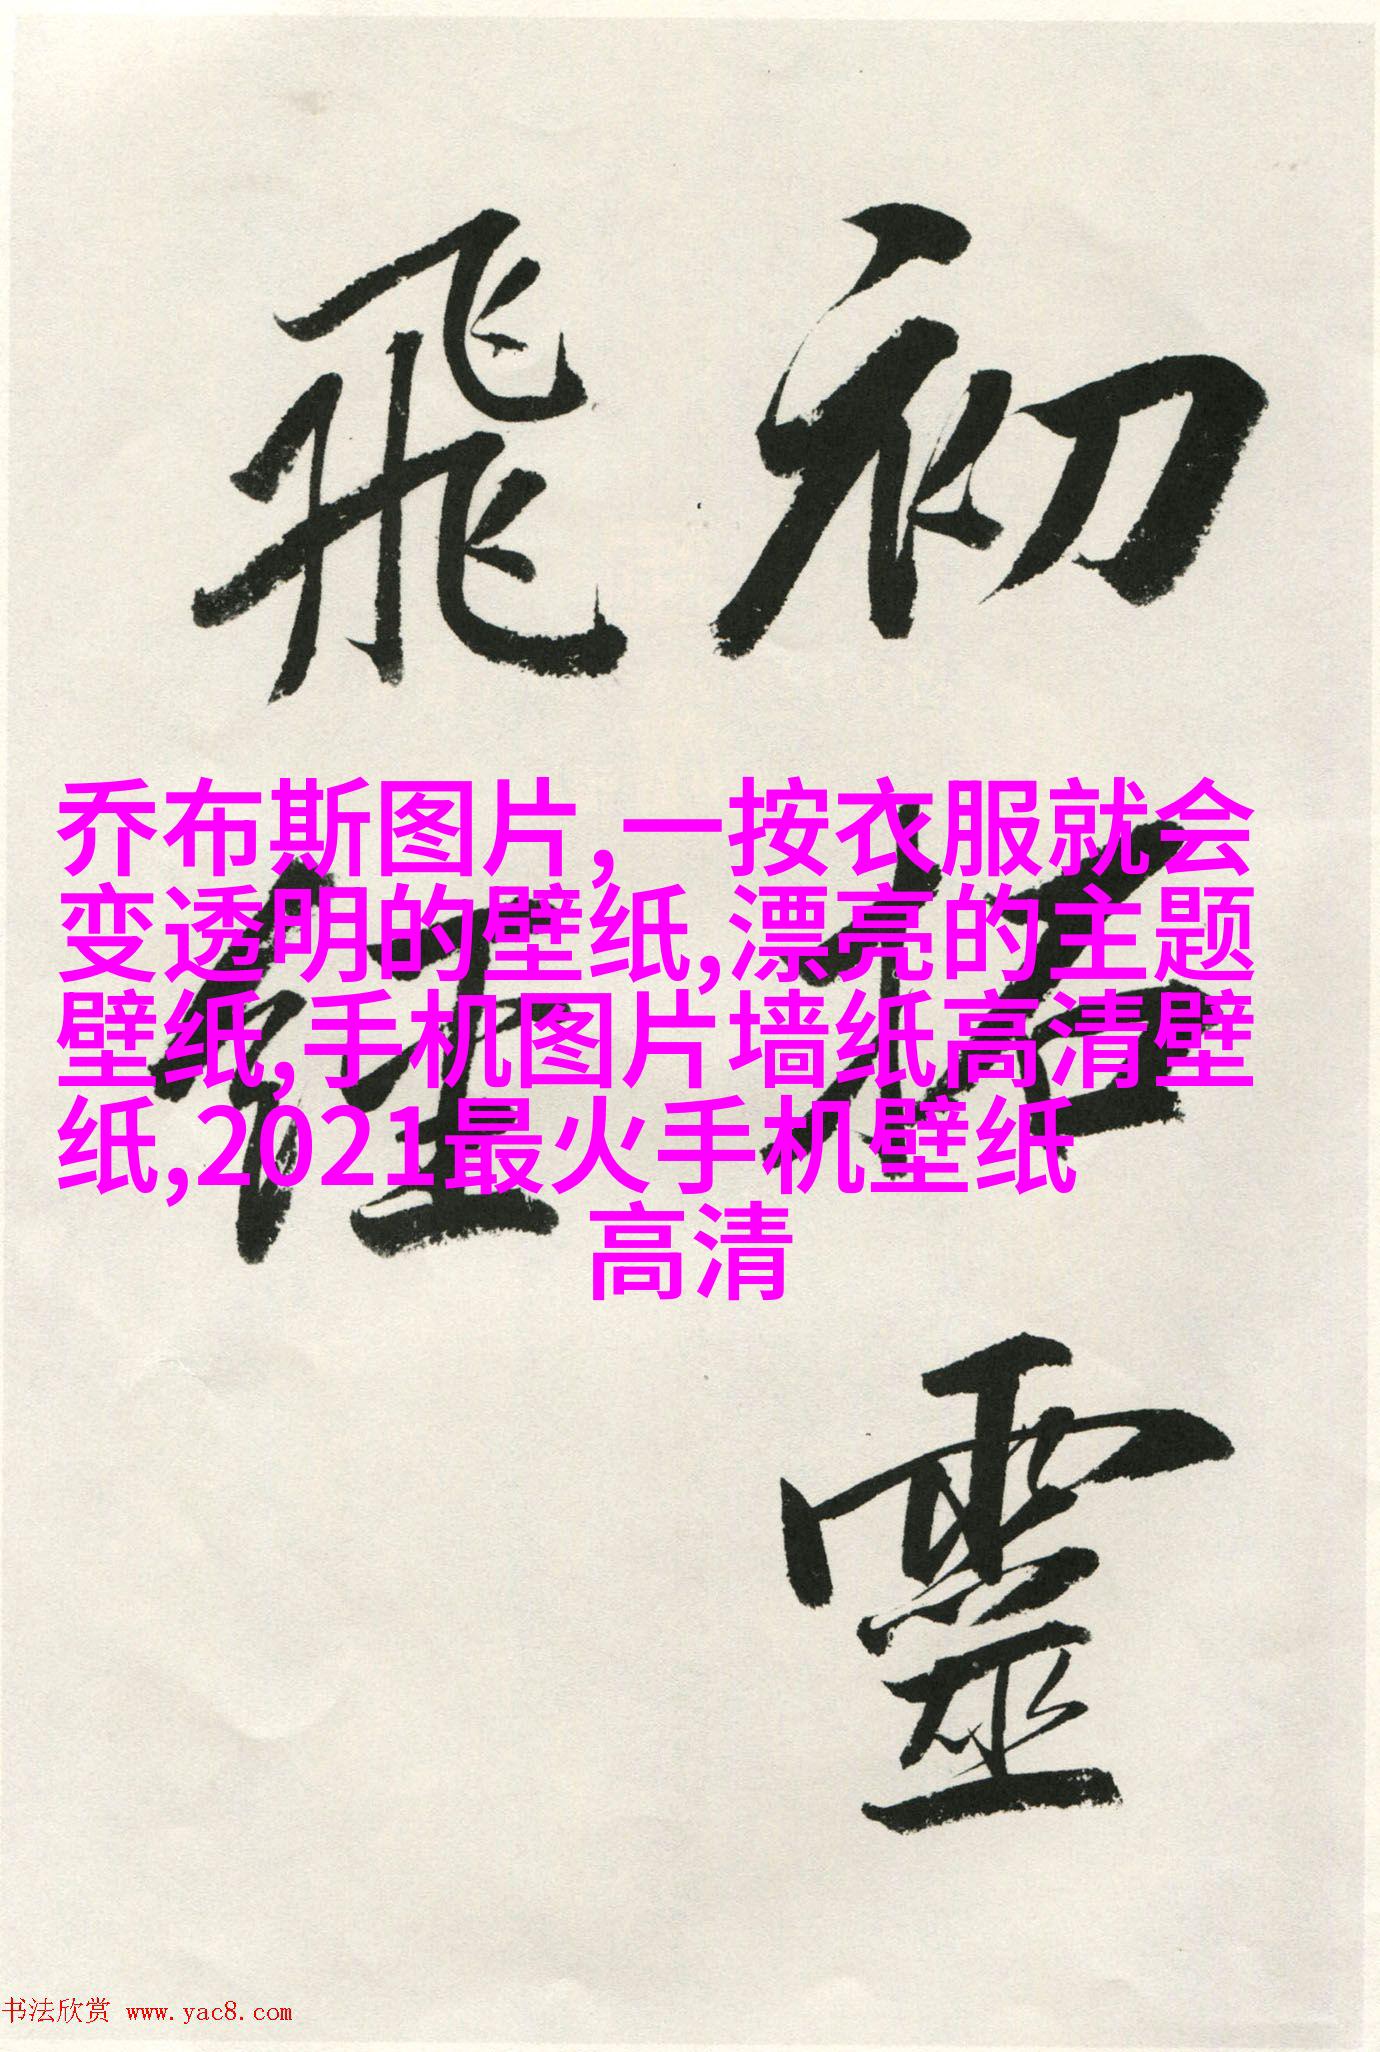 初拓靈
飛經
乔布斯图片,一按衣服就会
变透明的壁纸,漂亮的主题
壁纸,手机图片墙纸高清壁
纸,2021最火手机壁纸
高清
书法欣赏 www.yac8.com